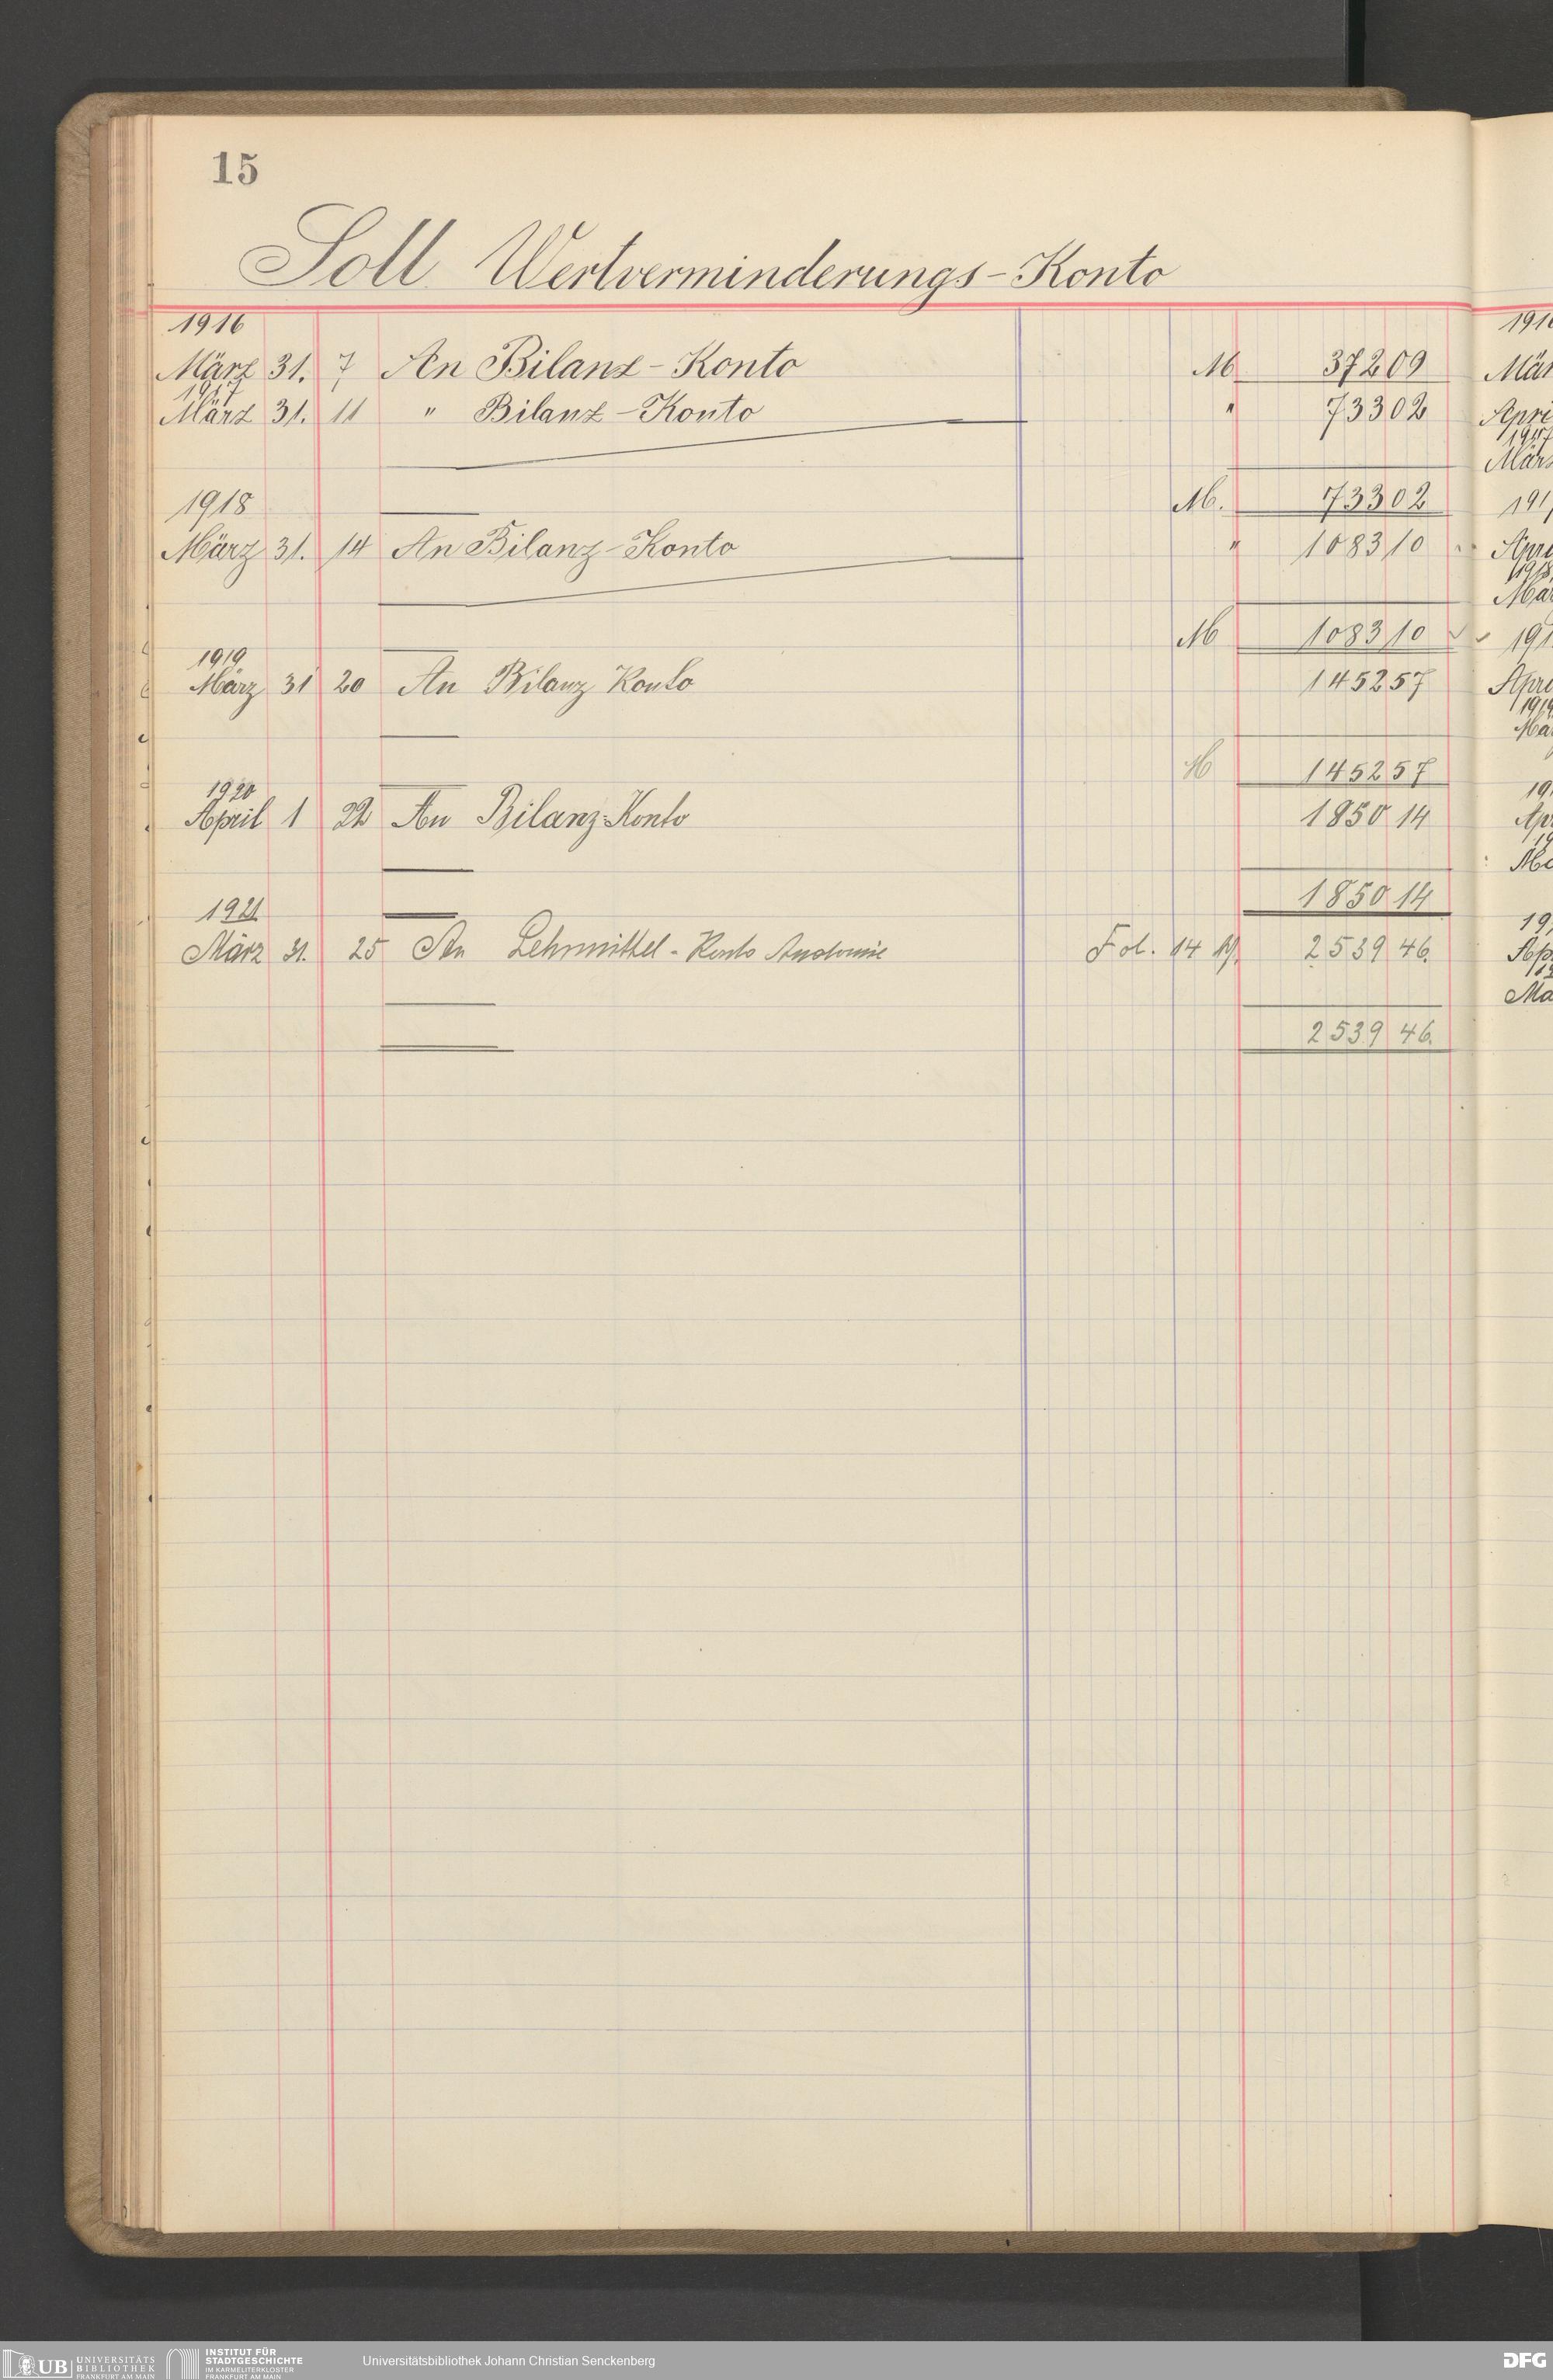 15
Soll Wertverminderungs-Konto
1916
März 31. 7 An Bilanz-Konto M 372 09
1917
März 31. 11 " Bilanz-Konto " 733 02
M. 733 02
1918
März 31. 14 An Bilanz-Konto " 1083 10
M 1083 10
1919
März 31 20 An Bilanz Konto 1452 57
M 1452 57
1920
April 1 22 An Bilanz-Konto 1850 14
1850 14
1921
März 31. 25 An Lehrmittel-Konto Anatomie Fol. 14 2539 46.
2539 46.
UB UNIVERSITÄTS
BIBLIOTHEK
FRANKFURT AM MAIN
INSTITUT FÜR
STADTGESCHICHTE
IM KARMELITERKLOSTER
FRANKFURT AM MAIN
Universitätsbibliothek Johann Christian Senckenberg
DFG